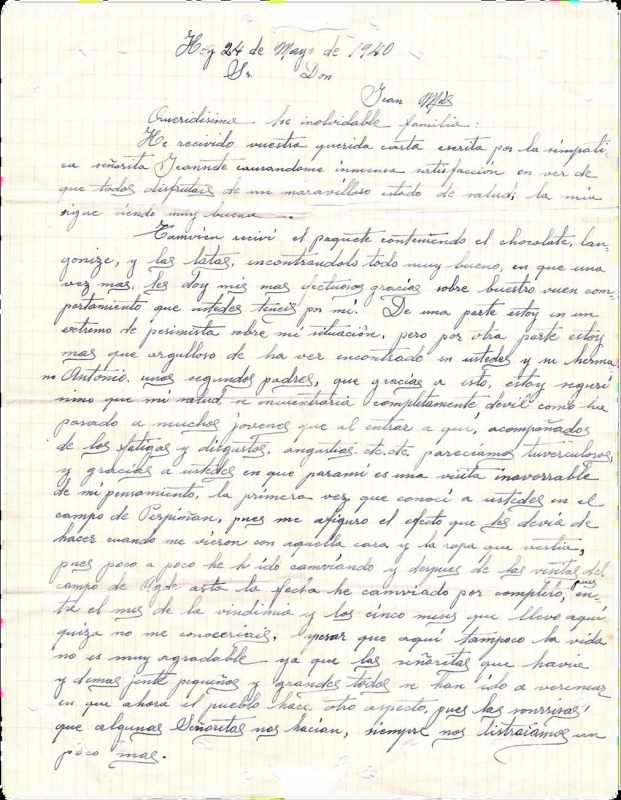 Hoy 24 de Mayo de 1940
Sr. Don
Jean Mas
Queridisima he inolvidable familia:
He recivido vuestra querida carta escrita por la simpati-
ca señorita Jeannete causandome inmensa satisfacción en ver de
que todos disfrutais de un maravilloso estado de salud; la mia
sigue siendo muy buena
Tamvien recivi el paquete conteniendo el chocolate, lan-
gonize, y las latas, encontrandolo todo muy bueno, en que una
vez mas, les doy mis mas efectuosas gracias sobre buestro vuen com-
portamiento que ustedes teneis por mi. De una parte estoy en un
extremo de perimista sobre mi situación, pero por otra parte estoy
mas que orgulloso de ha ver encontrado en ustedes y su herma-
no Antonio, unos segundos padres, que gracias a esto, estoy seguri
simo que mi salud, se encuentraria completamente devil como ha
pasado a muchos jovenes que al entrar a qui, acompañados
de las fatigas y disgustos, angustias etc. etc. pareciamos tuverculosos,
y gracias a ustedes en que parami es una visita inavorrable
de mi pensamiento, la primera vez, que conoci a ustedes en el
campo de Perpiñan, pues me afiguro el efecto que les devia de
hacer cuando me vieron con aquella cara y la ropa que vestia,
pues poco a poco he h ido camviando y despues de las visitas del
campo de Agde asta la fecha he camviado por completo, pues en-
tre el mes de la vindimia y los cinco meses que llevo aqui
quiza no me conoceriais, apesar que aqui tampoco la vida
no es muy agradable ya que las señoritas que havia
y demas jente pequeños y grandes todos se han ido a verenear
en que ahora el pueblo hace otro aspecto, pues las sonrrisas,
que algunas Señoritas nos hacian, siempre nos distraiamos un
poco mas.